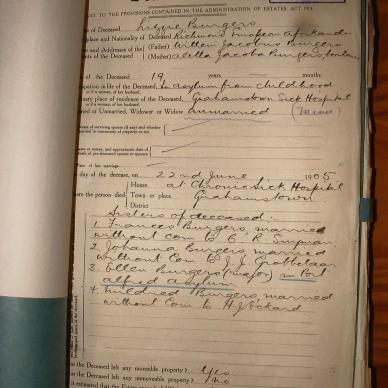 NT TO THE PROVISIONS CONTAINED IN THE ADMINISTRATION OF ESTATES ACT 1913
of Deceased Lizzie Burgers
place and Nationality of Deceased Richmond European Afrikander
es and Addresses of the (Father) Willem Jacobus Burgers
ts of the Deceased (Mother) Aletta Jacoba Burgers, born
of the Deceased 19 years months
pation in life of the Deceased In asylum from childhood
if a woman, of her husband.
nary place of residence of the Deceased Grahamstown Sick Hospital
if a woman, of her husband.
ried or Unmarried, Widower or Widow unmarried (Minor)
day of the decease, on 22nd June 1905
House at Chronic Sick Hospital
ere the person died Town or place Grahamstown
District
Sisters of deceased:-
1. Frances Burgers, married
without com to C. R.
2. Johanna Burgers married
without Com to J. J. Grobbelaar
3. Ellen Burgers (major) in Port
Alfred asylum
4. Mildred Burgers, married
without Com to H J Eckard
as the Deceased left any movable property? Yes
as the Deceased left any immovable property? No